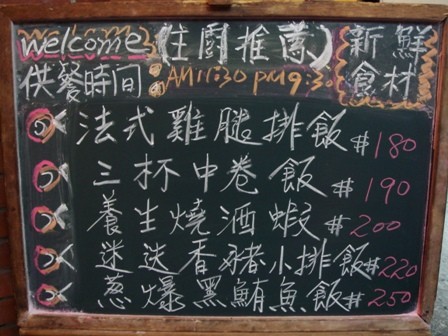 Welcome (住廚推薦) 新鮮食材
供餐時間: AM11:30 PM9:30
法式雞腿排飯 #180
三杯中卷飯 #190
養生燒酒蝦 #200
迷迭香豬小排飯 #220
蔥爆黑鮪魚飯 #250